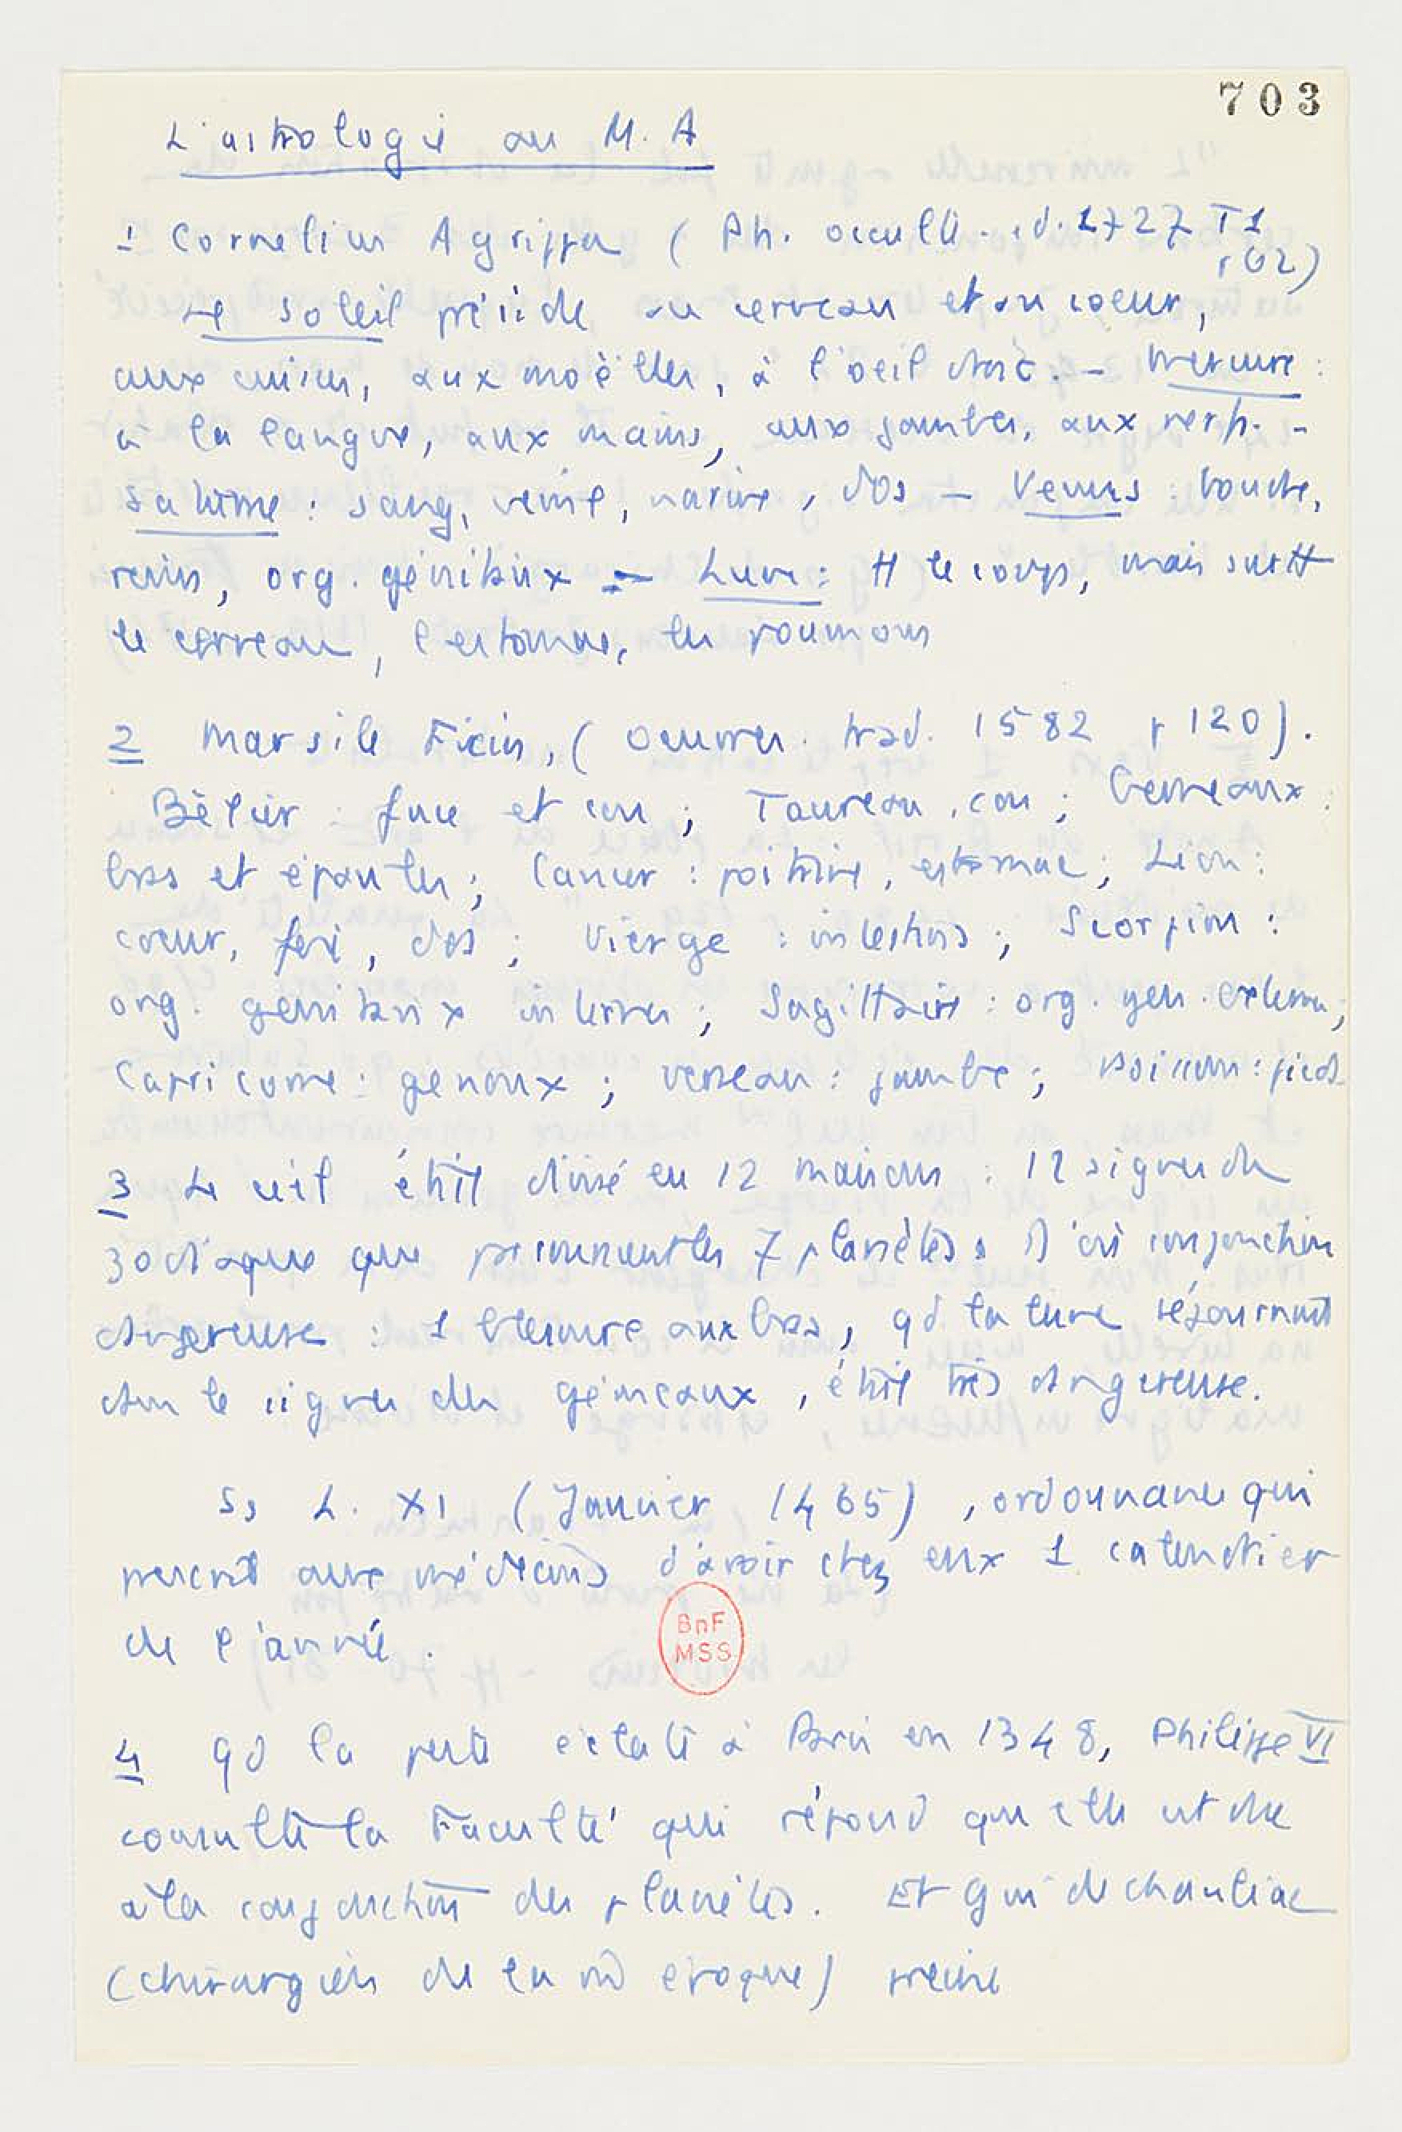 703
L'astrologie au M. A
1 Cornelius Agrippa (Ph. occulte. éd. 1727 T 1
p 62)
Le soleil préside au cerveau et au coeur,
aux cuisses, aux moëlles, à l'oeil droit. – Mercure :
à la langue, aux mains, aux jambes, aux nerfs. –
Saturne : sang, veine, narine, dos – Venus : bouche,
reins, org. génitaux – Lune : tt le corps, mais surtt
le cerveau, l'estomac, les poumons
2 Marsile Ficin, (Oeuvres. trad. 1582 p 120).
Bélier : face et cou ; Taureau. cou ; Gemeaux :
bras et épaules ; Cancer : poitrine, estomac ; Lion :
coeur, foie, dos ; Vierge : intestins ; Scorpion :
org. genitaux internes ; Sagittaire : org. gen. externes ;
Capricorne : genoux ; verseau : jambe ; Poissons : pieds
3 Le ciel était divisé en 12 maisons : 12 signes du
zodiaque que parcourent les 7 planètes. D'où conjonction
dangereuse : 1 blessure aux bras, qd la lune séjournait
dans le signe des gémeaux, était très dangereuse.
Ss L. XI (Janvier 1465), ordonnance qui
prescrit aux médecins d'avoir chez eux 1 calendrier
de l'année.
BnF
MSS
4 qd la peste éclate à Paris en 1348, Philippe VI
consulte la Faculté qui répond qu'elle est due
à la conjonction des planètes. Et Gui de Chauliac
(chirurgien de la m̂ epoque) précise